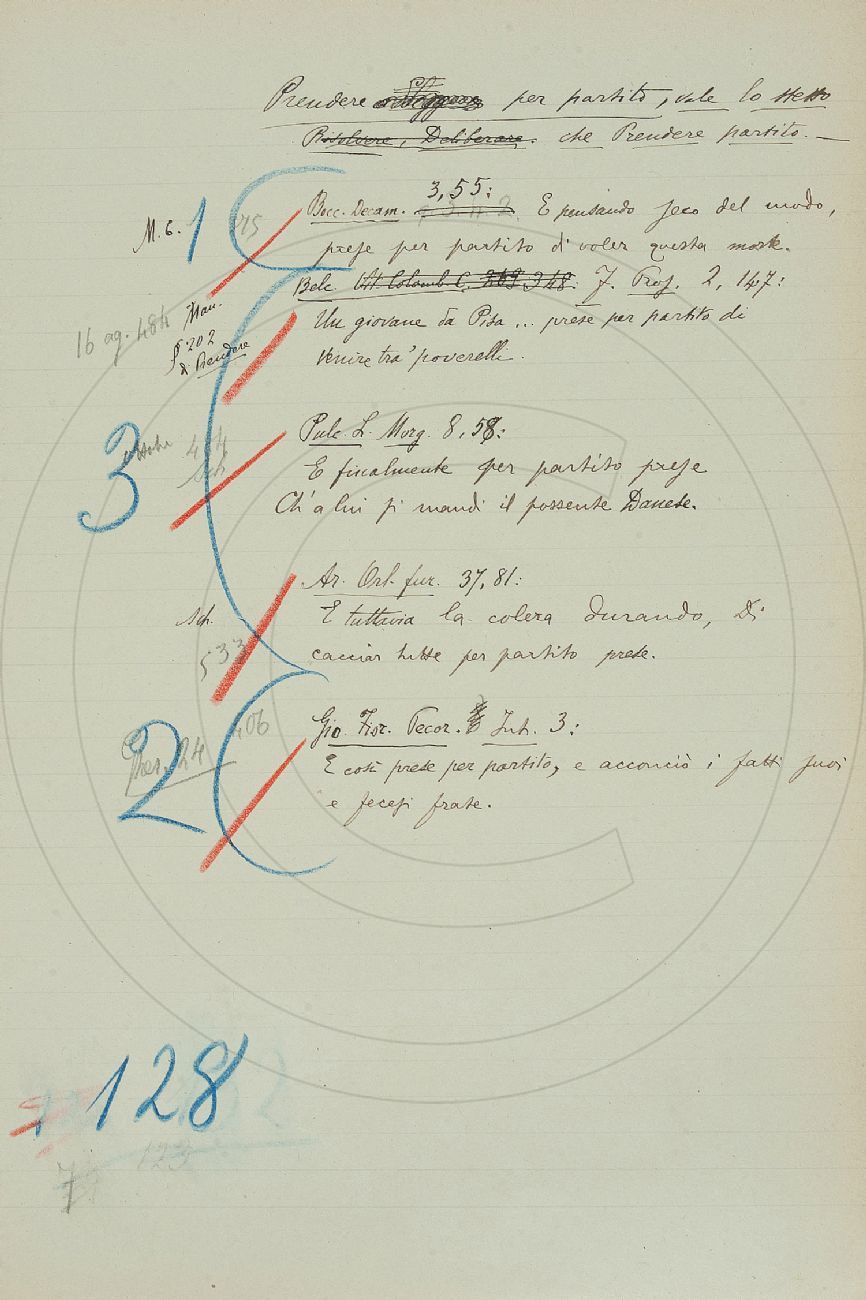 Prendere per partito, vale lo stesso
Risolvere, Deliberare. che Prendere partito. —
3,55:
M. C. 1 Bocc. Decam. E pensando seco del modo,
prese per partito di voler questa morte.
Belc. Vit. Colomb. C. 348. F. Pros. 2, 147:
16 ag. 484 Man. Un giovane da Pisa... prese per partito di
§ 202 venire tra' poverelli.
di Prendere
3 Pulc. L. Morg. 8, 58:
E finalmente per partito prese
Ch' a lui si mandi il possente Danese.
Ar. Orl. fur. 37, 81:
Sch. E tuttavia la colera durando, Di
533 cacciar tutte per partito prese.
2 406 Gio. Fior. Pecor. Int. 3:
24 E così prese per partito, e acconciò i fatti suoi
e fecesi frate.
128
123
7